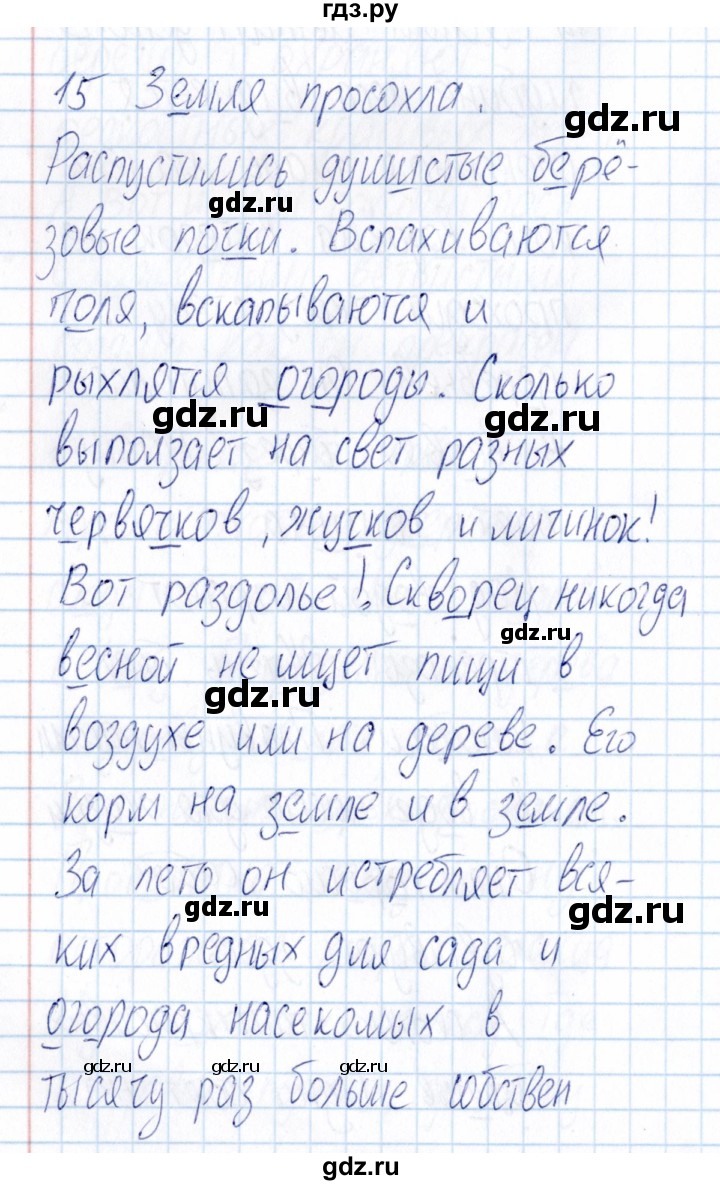 гдз.ру
15 Земля просохла.
gdz.ru
Распустились душистые берё-
gdz.ru
зовые почки. Вспахиваются
поля, вскапываются и
gdz.ru
рыхлятся огороды. Сколько
gdz.ru gdz.ru
выползает на свет разных
червячков, жучков и личинок!
Вот раздолье! Скворец никогда
gdz.ru
весной не ищет пищи в
gdz.ru
воздухе или на дереве. Его
корм на земле и в земле.
За лето он истребляет вся-
gdz.ru gdz.ru
ких вредных для сада и
огорода насекомых в
gdz.ru gdz.ru gdz.ru gdz.ru
тысячу раз больше собствен
gdz.ru